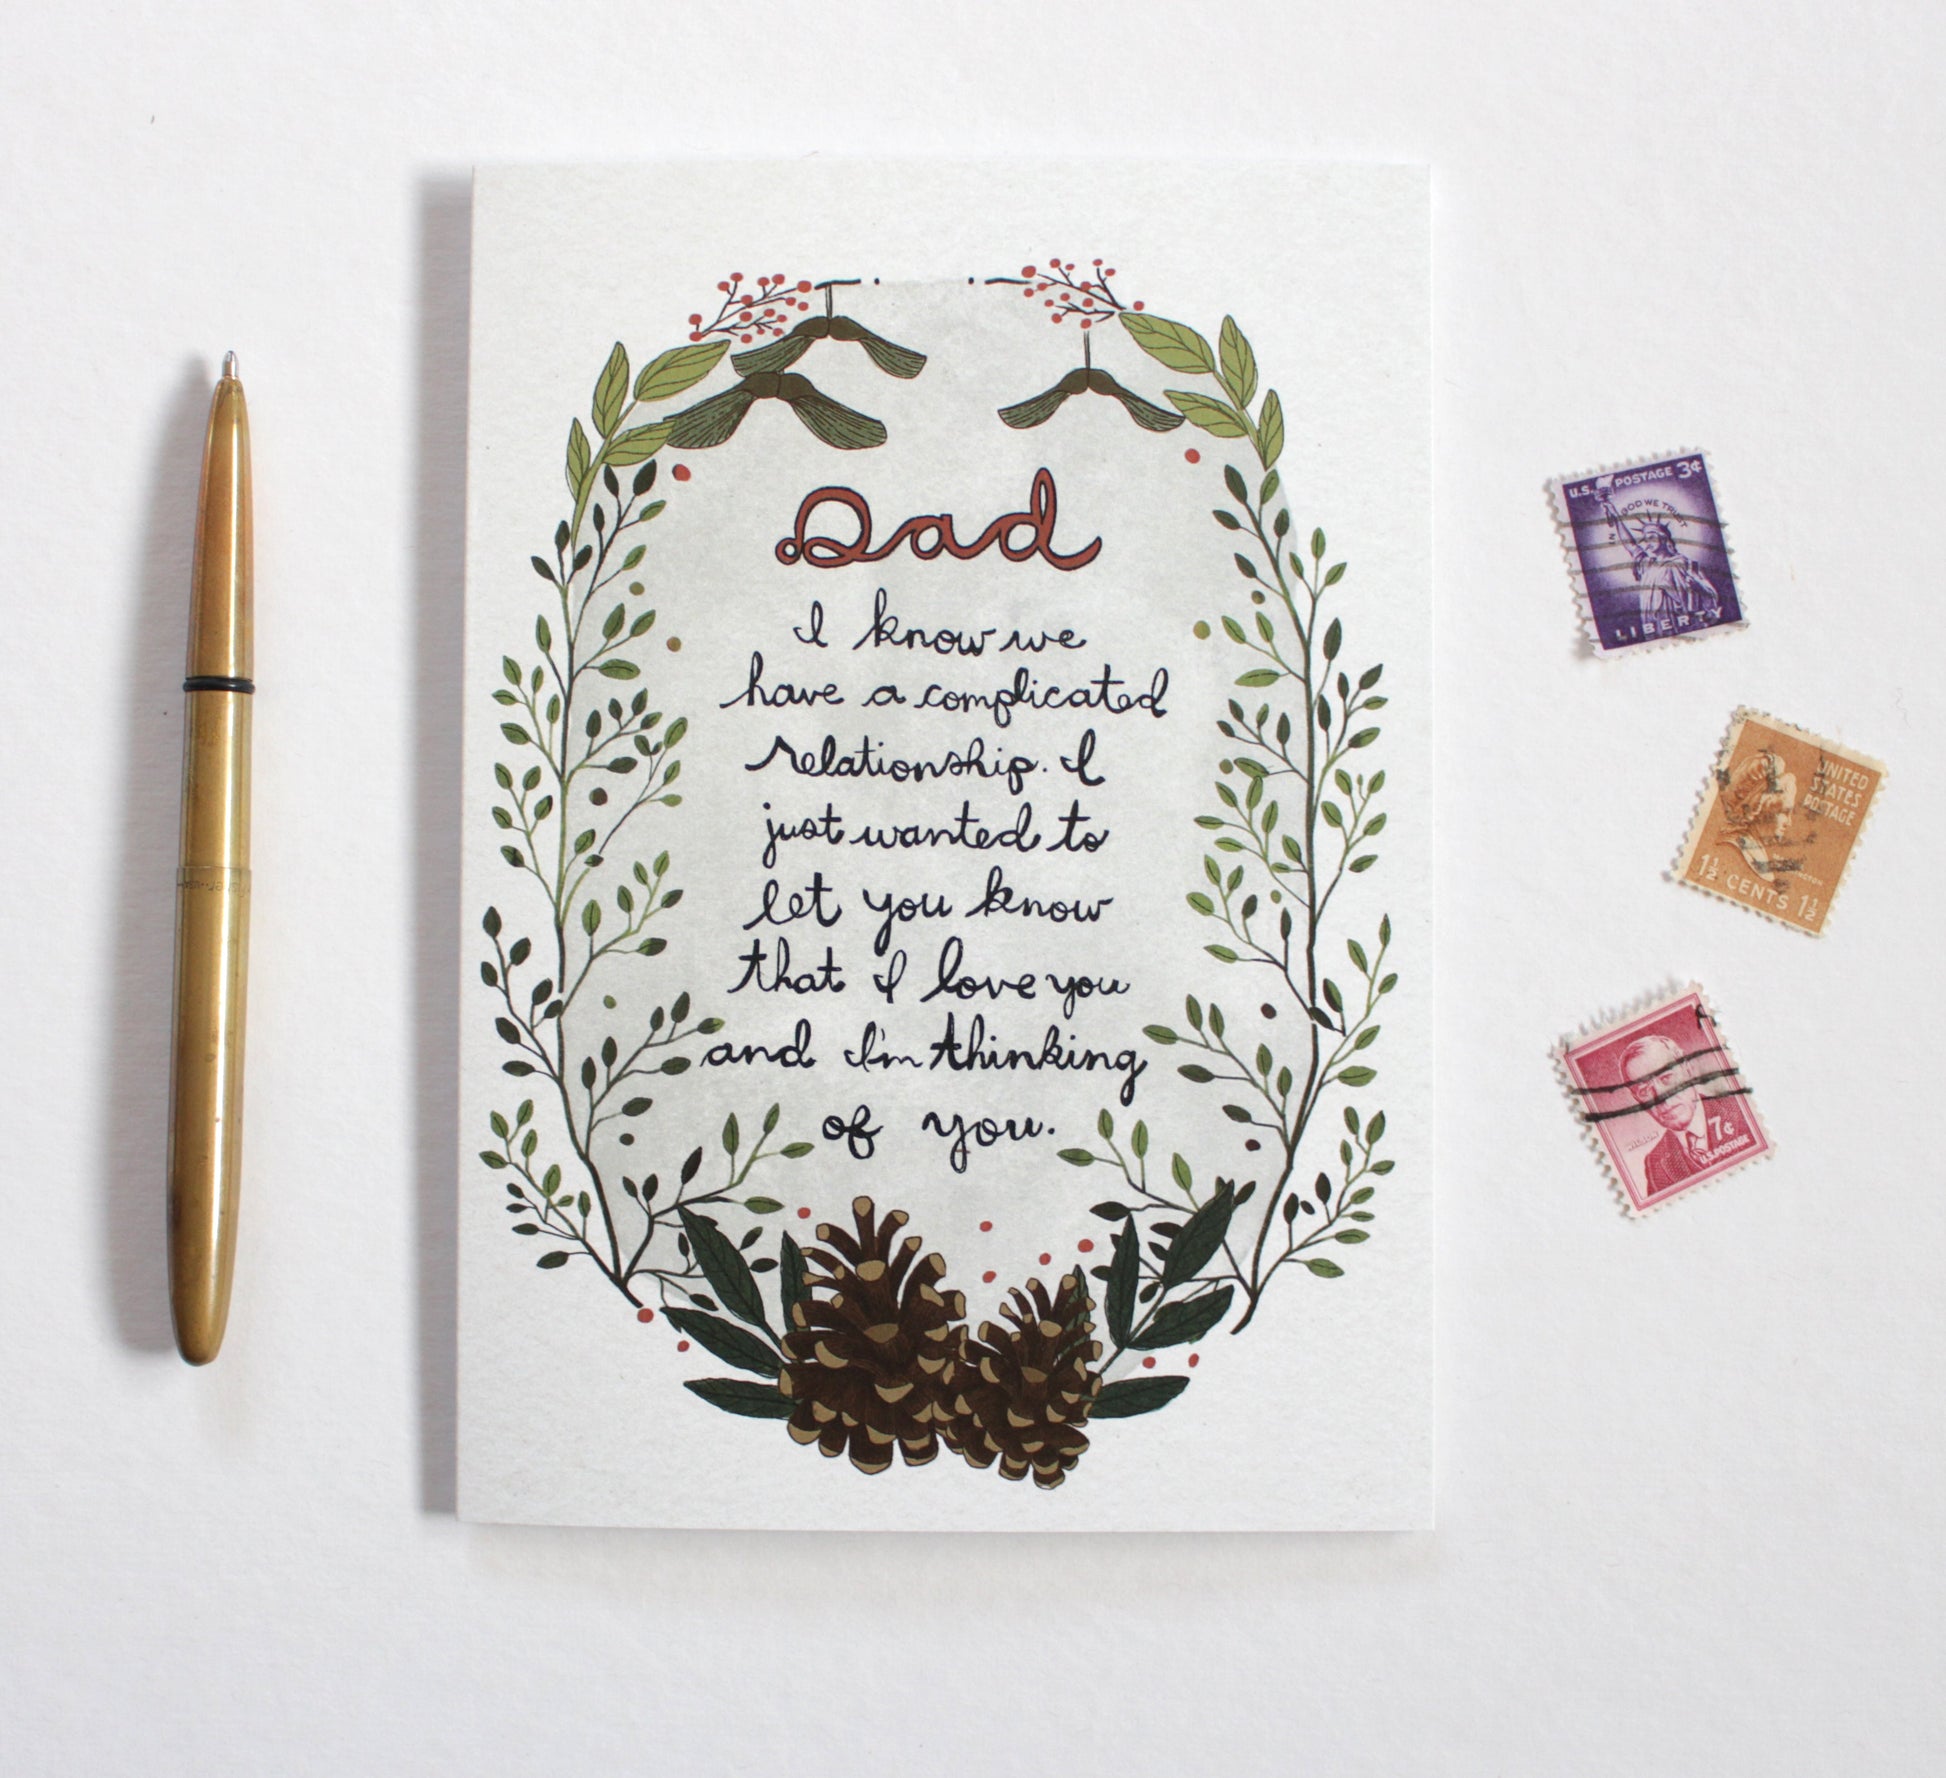 Dad
I know we
have a complicated
relationship. I
just wanted to
let you know
that I love you
and I'm thinking
of you.
U.S. POSTAGE 3¢
IN GOD WE TRUST
LIBERTY
UNITED
STATES
POSTAGE
1½ CENTS 1½
WILSON
7¢
U.S. POSTAGE